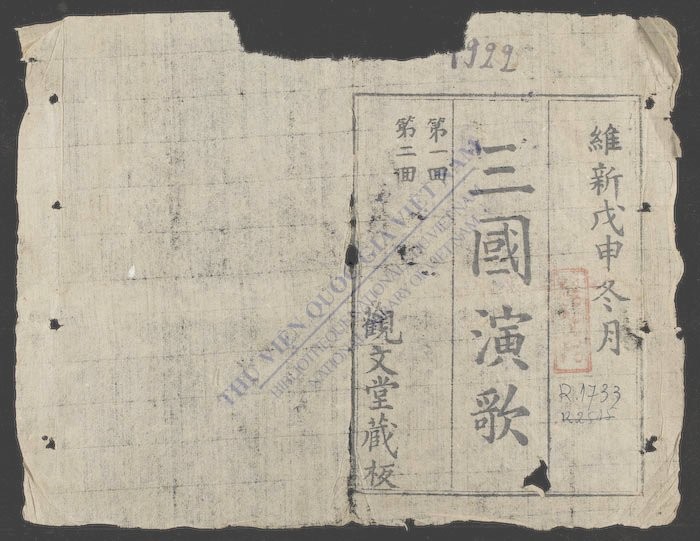 1922
維新戊申冬月
三國演歌
第一回
第二回
觀文堂藏板
R.1733
R2515
THƯ VIỆN QUỐC GIA VIỆT NAM
BIBLIOTHEQUE NATIONALE DU VIETNAM
NATIONAL LIBRARY OF VIETNAM